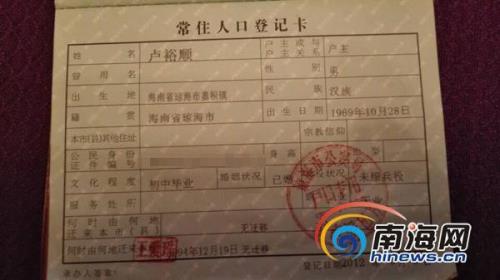 常住人口登记卡
姓名 卢裕顺 户主或与户主关系 户主
曾用名 性别 男
出生地 海南省琼海市嘉积镇 民族 汉族
籍贯 海南省琼海市 出生日期 1969年10月28日
本市(县)其他住址 宗教信仰
公民身份证件编号 身高
文化程度 初中毕业 婚姻状况 已婚 兵役状况 未服兵役
服务处所
何时由何地迁来本市(县) 无迁移
何时由何地迁来本 1994年12月19日 无迁移
承办人签章: 登记日期: 2012
户口专用
南海网